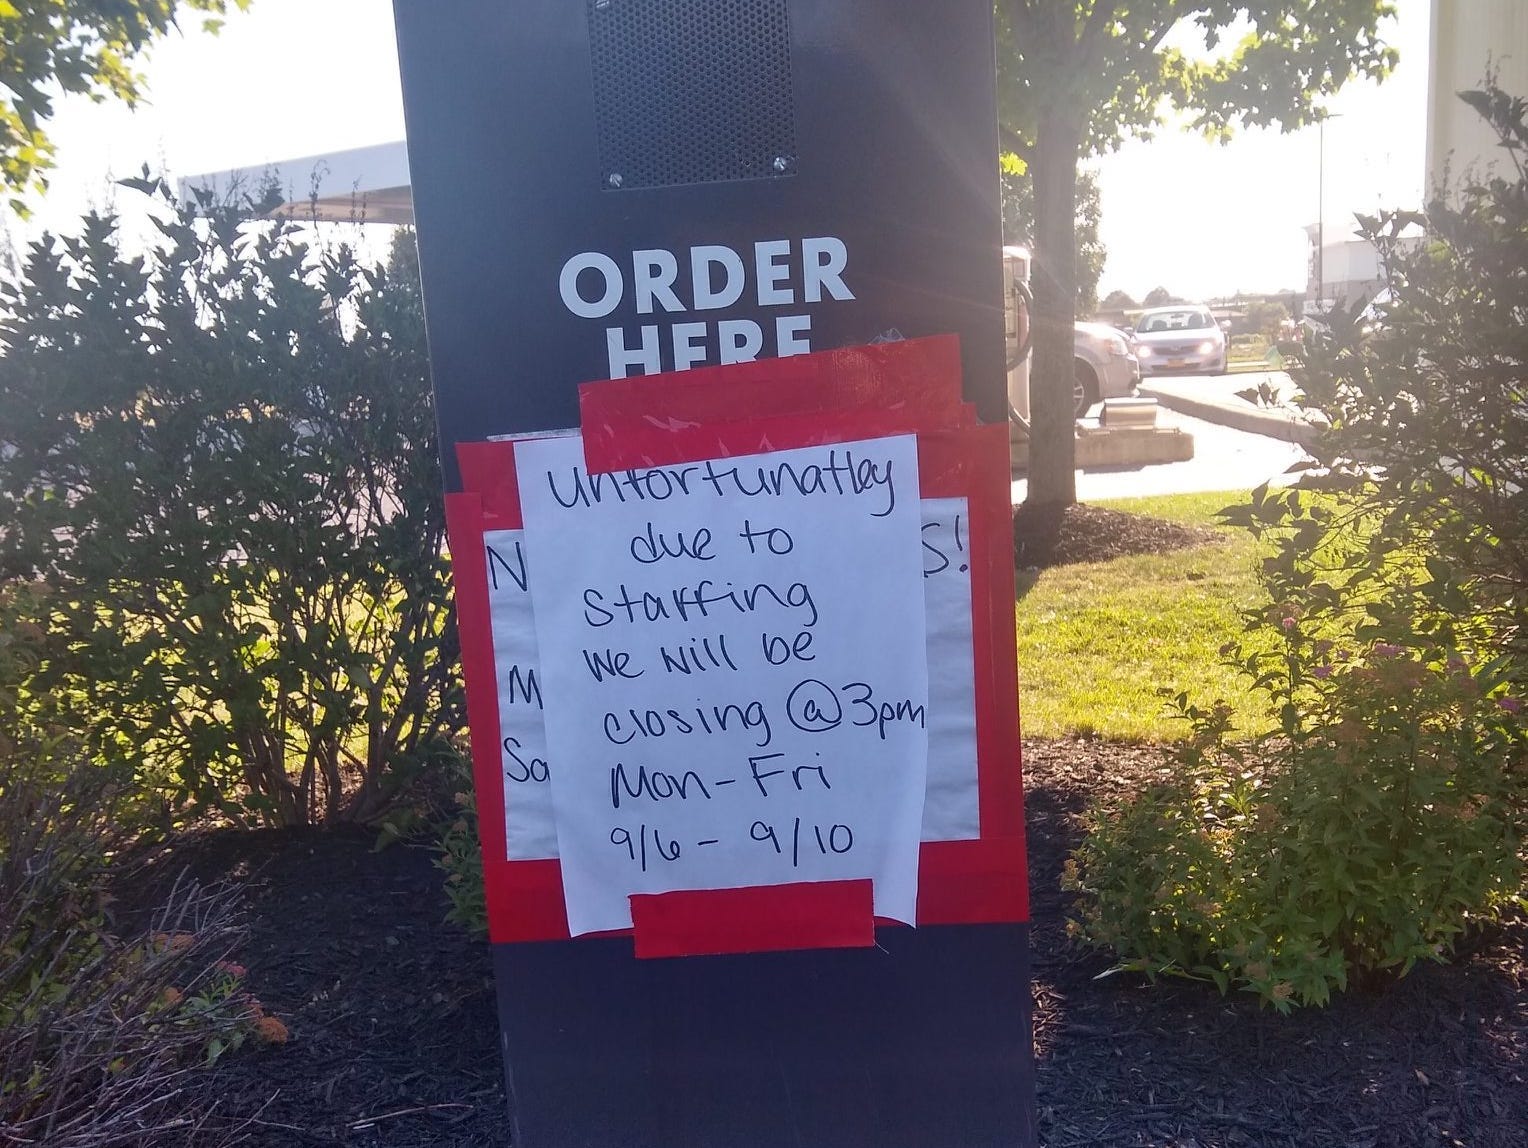 ORDER
HERE
Unfortunatley
due to
staffing
we will be
closing @ 3pm
Mon-Fri
9/6 - 9/10
N
S!
M
Sa